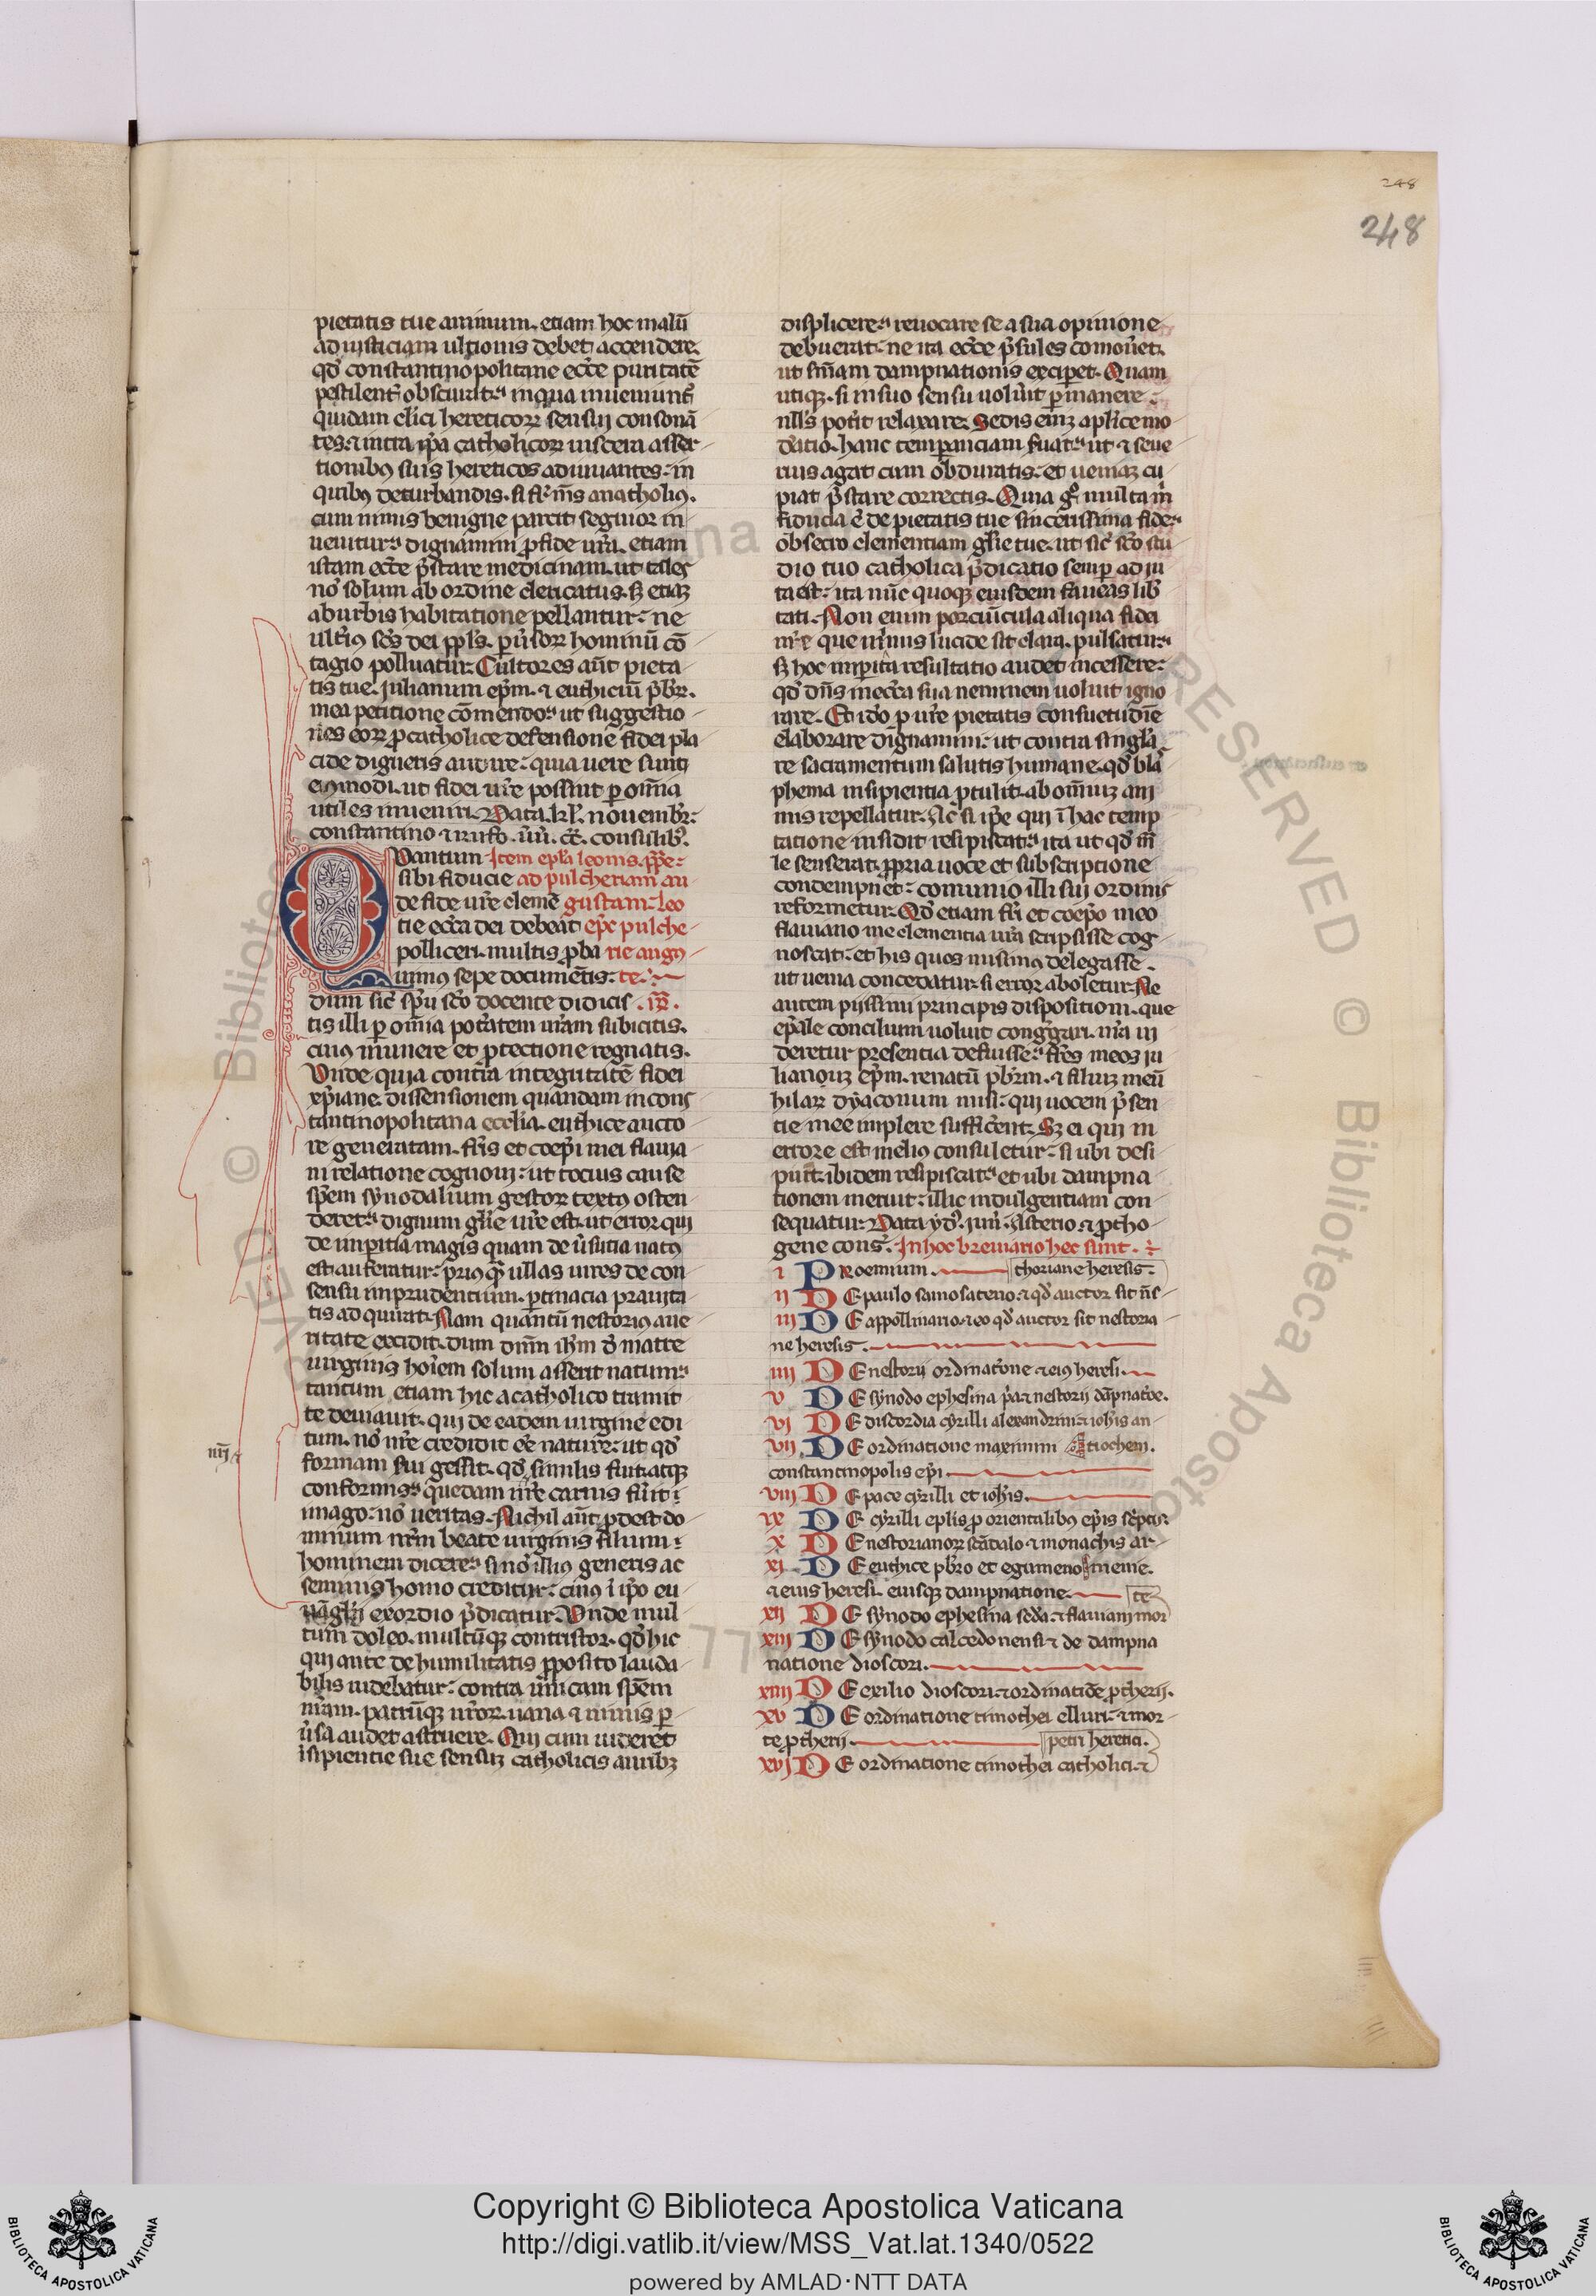 248
248
pietatis tue animum. etiam hoc malū
ad iusticiam ultionis debet accendere.
qd̄ constantinopolitane ecce puritatē
pestilens obscurit. in qua inueniunt̄
quidam clici hereticoꝝ sensui consonā
tes. ⁊ intra ip̄a catholicoꝝ uiscera asser
tionibꝰ suis hereticos adiuuantes. in
quibꝰ deturbandis. si fr̄. ms̄ anatholiꝰ.
cum nimis benigne parcit segnior in
uenitur. dignamini ꝓ fide ur̄a. etiam
istam ecce p̄stare medicinam. ut tales
nō solum ab ordine clericatus. sꝫ etiaꝫ
ab urbis habitatione pellantur. ne
ultiꝰ scs̄ dei ppl̄s. puersoꝝ hominū cō
tagio polluatur. Cultores aūt pieta
tis tue. iulianum ep̄m. ⁊ euthiciū pb̄rꝝ.
mea petitione cōmendo. ut suggestio
nes eoꝝ ꝓ catholice defensione fidei pla
cide digneris audire. quia uere sunt
eiꝰmodi. ut fidei ur̄e possint ꝑ om̄ia
utiles inueniri. Data. kl̄. nouembr̄.
constantino ⁊ rufo. ūū. cc̄. consulibꝰ.
Quantum Item epl̄a leonis. pp̄e.
sibi fiducie ad pulcheriam au
de fide ur̄e clemē gustam. leo
tie ecc̄a dei debeat ep̄c pulche
polliceri. multis ꝓba rie augꝰ
uimus sepe documētis. te.
dum sic̄ sp̄u sc̄o docente didicis
tis illi ꝑ om̄ia potatem ur̄am subicitis.
cuiꝰ munere et ꝓtectione regnatis.
Unde quia contra integritatē fidei
xp̄iane. dissensionem quandam in cons
tantinopolitana ecclia. euthice aucto
re generatam. fr̄is et coep̄i mei flauia
ni relatione cognoui. ut tocius cause
sp̄em synodalium gestoꝝ textꝰ osten
deret. dignum gl̄ie ur̄e est. ut error qui
de imperitia magis quam de ūsutia natꝰ
est auferatur. priꝰ qua ullas uires de con
sensu imprudentium. ꝑtinacia prauita
tis adquirat. Nam quantū nestoriꝰ aue
ritate excidit. dum dnm̄ ih̄m d̄ matre
uirginis hoīem solum asserit natum.
tantum etiam hic a catholico tramit
te deuiauit. qui de eadem uirgine edi
tum. nō nr̄e credidit ēe nature. ut qd̄
formam serui gessit. qd̄ similis fuit. atqꝫ
conformis. quedam nr̄e carnis fuerit
imago. nō ueritas. Nichil aūt ꝓdest do
minum nr̄m beate uirginis filium.
hominem dicere. si nō illiꝰ generis ac
seminis homo creditur. cuiꝰ ī ip̄o eu
uāglii exordio p̄dicatur. Unde mul
tum doleo. multūqꝫ contristor. qd̄ hic
qui ante de humilitatis ꝓposito lauda
bilis uidebatur. contra unicam spem
nr̄am. patrūqꝫ nr̄oꝝ. uana ⁊ nimis ꝑ
ūsa audet astruere. Qui cum uideret
īsipientie sue sensuꝫ catholicis auribꝫ
displicere. reuocare se a sua opinione
debuerat. ne ita ecc̄e p̄sules comoūet.
ut sn̄iam dampnationis exciperet. Quam
utiqꝫ. si in suo sensu uoluit ꝑmanere.
nllꝰs poterit relaxare. Sedis eniꝫ aplice mo
datio. hanc temperanciam seruat. ut ⁊ seue
rius agat cum obduratis. et ueniaꝫ cu
piat p̄stare correctis. Quia gͦ multa m̄
fiducia ē de pietatis tue sincerissima fide.
obsecro clementiam gl̄ie tue. ut sic̄ sc̄o stu
dio tuo catholica p̄dicatio semꝑ adiu
ta est. ita nūc quoqꝫ eiusdem faueas lib̄
tati. Non enim porciūcula aliqua fidei
nr̄e que minus lucide sit clara. pulsatur.
sꝫ hoc imperita resultatio audet incessere.
qd̄ dn̄s in ecc̄ia sua neminem uoluit igno
rare. Et ido ꝓ ur̄e pietatis consuetudīe
elaborare dignamini. ut contra singla
re sacramentum salutis humane. qd̄ blas
phema insipientia ꝓtulit. ab omniuꝫ ani
mis repellatur. Ac si ipe qui ī hac temp
tatione insidit resipiscat. ita ut qd̄ m̄
le senserat. ꝓpria uoce et subscriptione
condempnet. comunio illi sui ordinis
reformetur. Qd̄ etiam fr̄i et coep̄o meo
flauiano me clementia ur̄a scripsisse cog
noscat. et his quos misimꝰ delegasse.
ut uenia concedatur. si error aboletur. Ne
autem piissimi principis dispositioni. que
ep̄ale concilium uoluit cong̃gari. nr̄a ui
deretur presentia defuisse. fr̄es meos iu
lianouꝫ ep̄m. renatū pbr̄m. ⁊ filiuꝫ meū
hilarꝝ dyaconum misi. qui uocem p̄sen
tie mee implere sufficēnt. Sꝫ ei qui in
errore est meliꝰ consuletur. si ubi desi
puit. ibidem resipiscat. et ubi dampna
tionem meruit. illic indulgentiam con
sequatur. Data ydꝰ. iun̄. Asterio ⁊ ꝓtho
gene cons̄. In hoc breuiario hec sunt.
i Prooemium. thoriane heresis.
ij De paulo samosateno. ⁊ qd̄ auctor sit n̄s
iij De appollinario. ⁊ eo qd̄ auctor sit nestoria
ne heresis.
iiij De nestorij ordinatōne ⁊ eiꝰ heresi.
v De synodo ephesina p̄a ⁊ nestorij dāpnatōe.
vi De discordia cyrilli alexandrini ⁊ ioh̄is an
vij De ordinatione maximini tiochem.
constantinopolis ep̄i.
viij De pace cyrilli et ioh̄is.
ix De cyrilli epl̄is ꝓ orientalibꝰ ep̄is sc̄ptis
x De nestorianoꝝ scādalo ⁊ monachis ar
xi De euthice pbr̄o et egumeno menie.
⁊ eius heresi. eiusqꝫ dampnatione. te
xij De synodo ephesina seda ⁊ flauiani mor
xiij De synodo calcedonensi ⁊ de dampna
natione dioscori.
xiiij De exilio dioscori. ⁊ ordinatiōe ꝓtherij.
xv De ordinatione timothei elluri. ⁊ mor
te ꝓtherij. petri heretici.
xvi De ordinatione timothei catholici. ⁊
iiij
Copyright © Biblioteca Apostolica Vaticana
http://digi.vatlib.it/view/MSS_Vat.lat.1340/0522
powered by AMLAD·NTT DATA
BIBLIOTECA APOSTOLICA VATICANA
BIBLIOTECA APOSTOLICA VATICANA